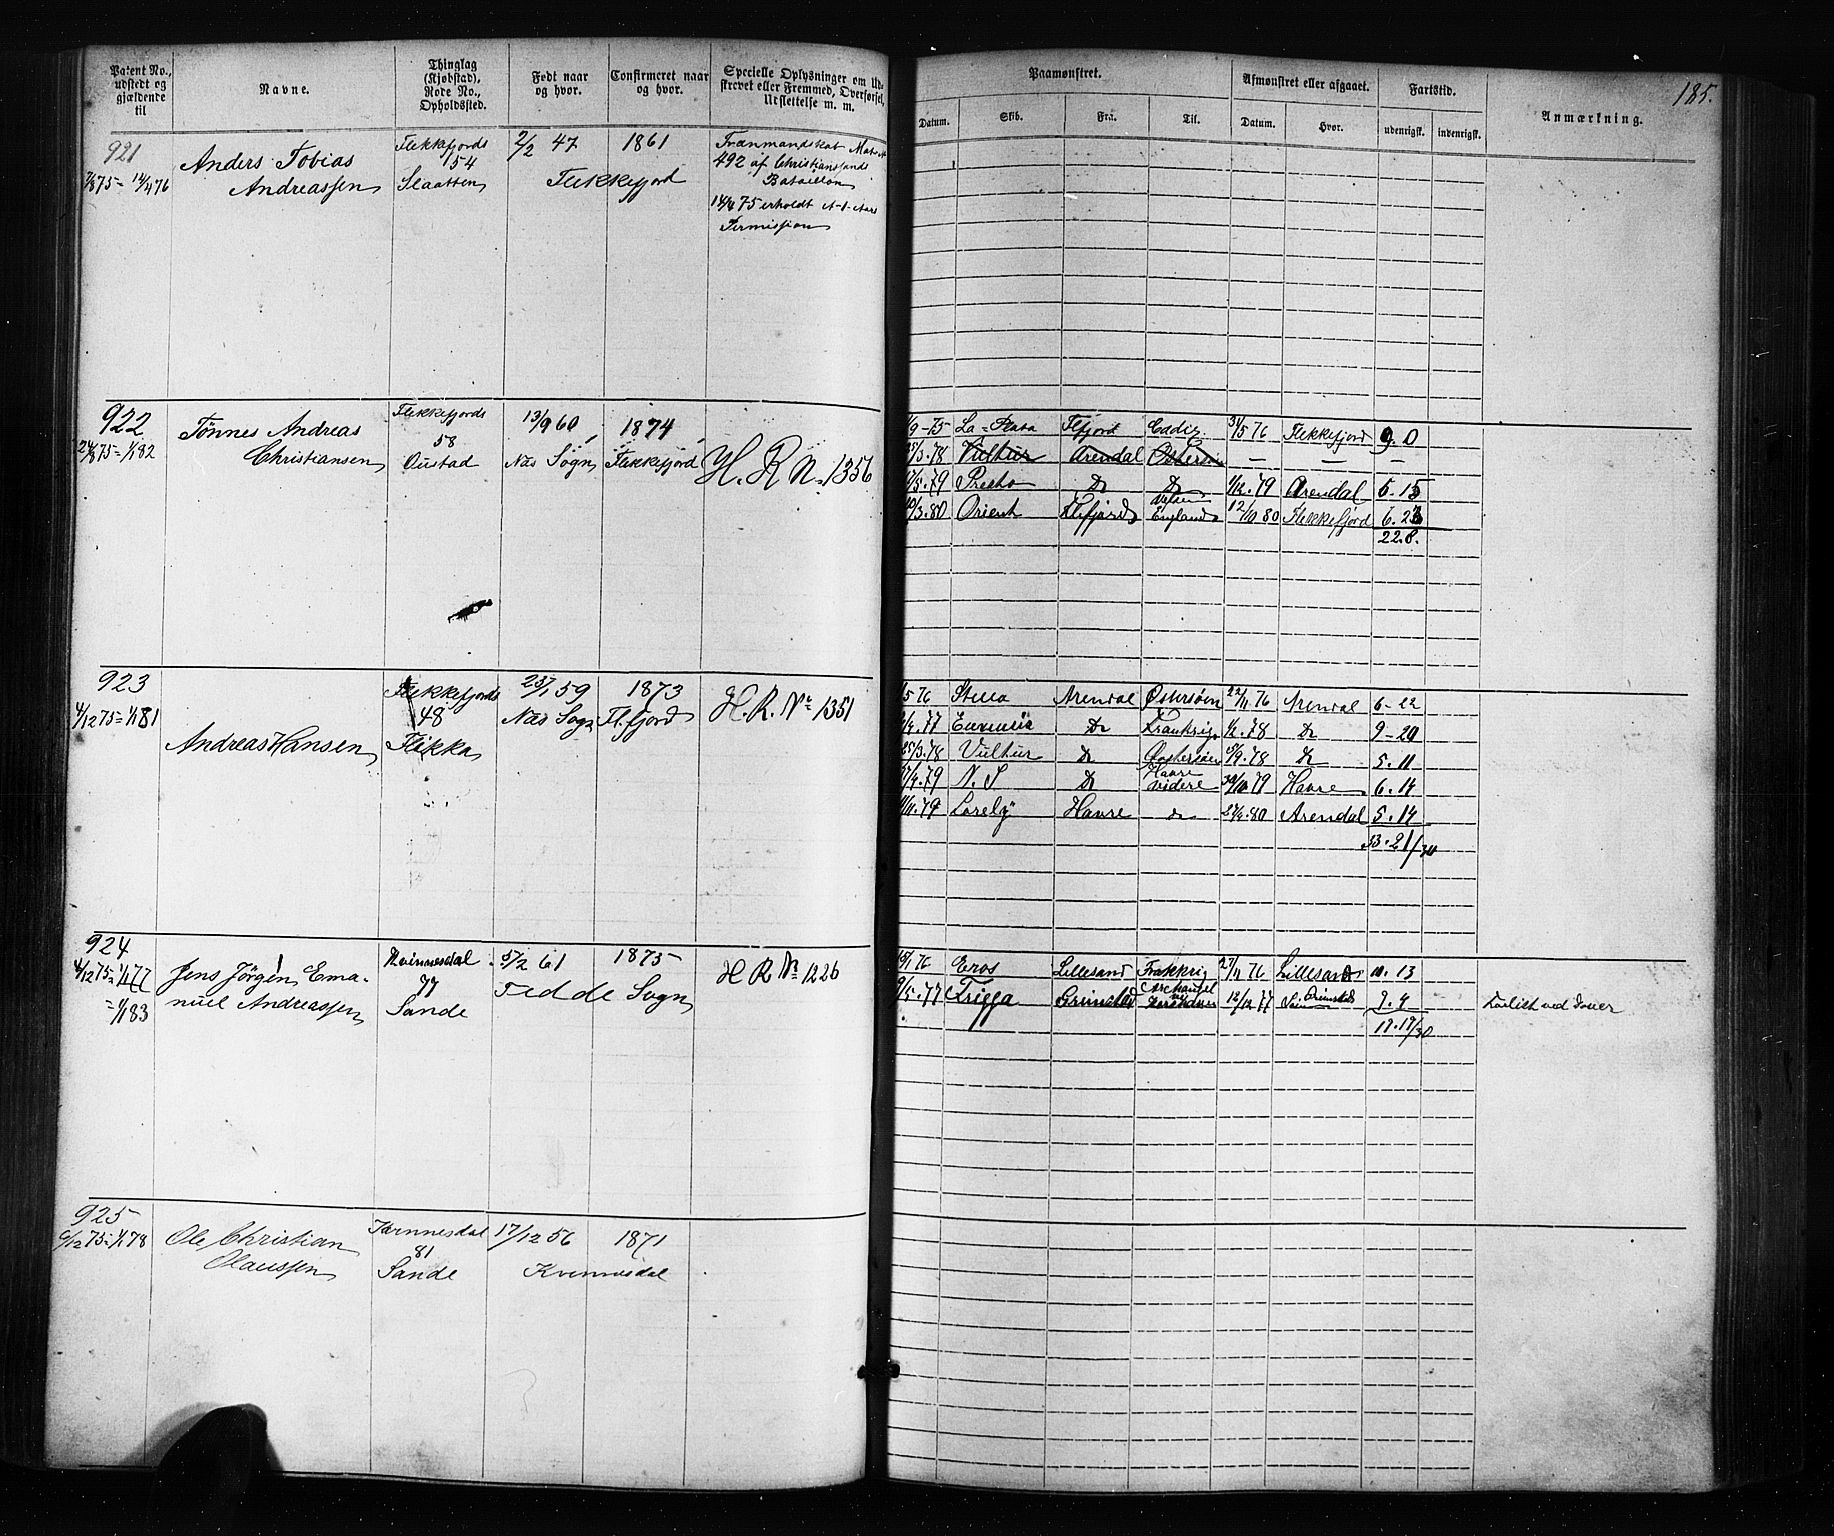 Patent No., udstedt og gjældende til
Navne.
Thinglag (Kjøbstad), Rode No., Opholdssted.
Født naar og hvor.
Confirmeret naar og hvor.
Specielle Oplysninger om Udskrevet eller Fremmed, Overførsel, Udslettelse m. m.
Paamønstret.
Afmønstret eller afgaaet.
Fartstid.
Anmærkning.
185.
Datum.
Skib.
Fra.
Til.
Datum.
Hvor.
udenrigsk.
indenrigsk.
921
Anders Tobias
Andreassen
Flekkefjords
154
Slaatten
2/2 47
1861
Flekkefjord
492 af Christianssands
Bataillon
14/4 75 erholdt
Permission
922
24/8 75 = 1/1 82
Tønnes Andreas
Christiansen
Flekkefjords
58
Oustad
13/9 60
Næs Sogn
1874
Flekkefjord
H. R. No 1356
/9 - 75 La-Plata Flfjord Cadiz 31/5 76 Flekkefjord 9. 0
/3. 78 Vultur Arendal Østersøen — —
/5. 79 Do Do 1/12. 79 Arendal 6. 15
/3. 80 Orient Flefjord England 12/10 80 Flekkefjord 6. 23
22. 8.
923
4/12 75 = 1/1 81
Andreas Hansen
Flekkefjords
48
Flikka
23/1 59
Næs Sogn
1873
Fl.fjord
H. R. No 1351
/5 76 Stella Arendal Østersøen 22/11 76 Arendal 6 - 22
/4. 77 Do Frankrig 1/2. 78 Do 9 - 20
25/3. 78 Vultur Do Østersøen 5/9. 78 Do 5. 11
/4. 79 N. S Do Havre videre 30/10 79 Havre 6. 14
/11. 79 Lorely Havre do 27/4. 80 Arendal 5. 14
33. 21/30
924
4/12 75 = 1/1 77
= 1/1 83
Jens Jörgen Ema-
nuel Andreassen
Kvinnesdal
77
Sande
5/2 61
1875
Fedde Sogn
H R No 1226
/76 Eros Lillesand Frakkrig 27/11 76 Lillesand 10. 13
/5. 77 Frigga Grimstad Archangel 12/12 77 Grimstad 7. 4
Forlist ved Dover
17. 17/30
925
6/12 75 = 1/1 78
Ole Christian
Olaussen
Kvinnesdal
81
Sande
17/12 56
1871
Kvinnesdal